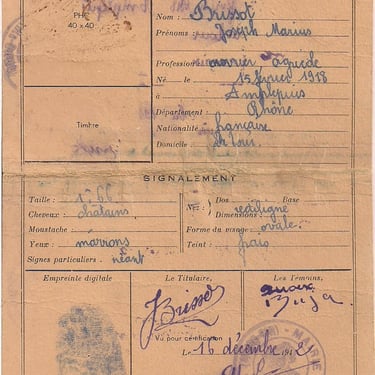 PHOTO
40 x 40
Nom : Brissot
Prénoms : Joseph Marius
Profession : ouvrier agricole
Né le 15 février 1918
à Amplepuis
Département : Rhône
Nationalité : française
Domicile :
Timbre
SIGNALEMENT
Taille :
Cheveux : châtains
Moustache :
Yeux : marrons
Signes particuliers : néant
Dos Base
Nez : rectiligne
Dimensions :
Forme du visage : ovale
Teint : frais
Empreinte digitale
Le Titulaire,
Les Témoins,
Brissot
Vu pour certification
Le 16 décembre 194
MAIRIE